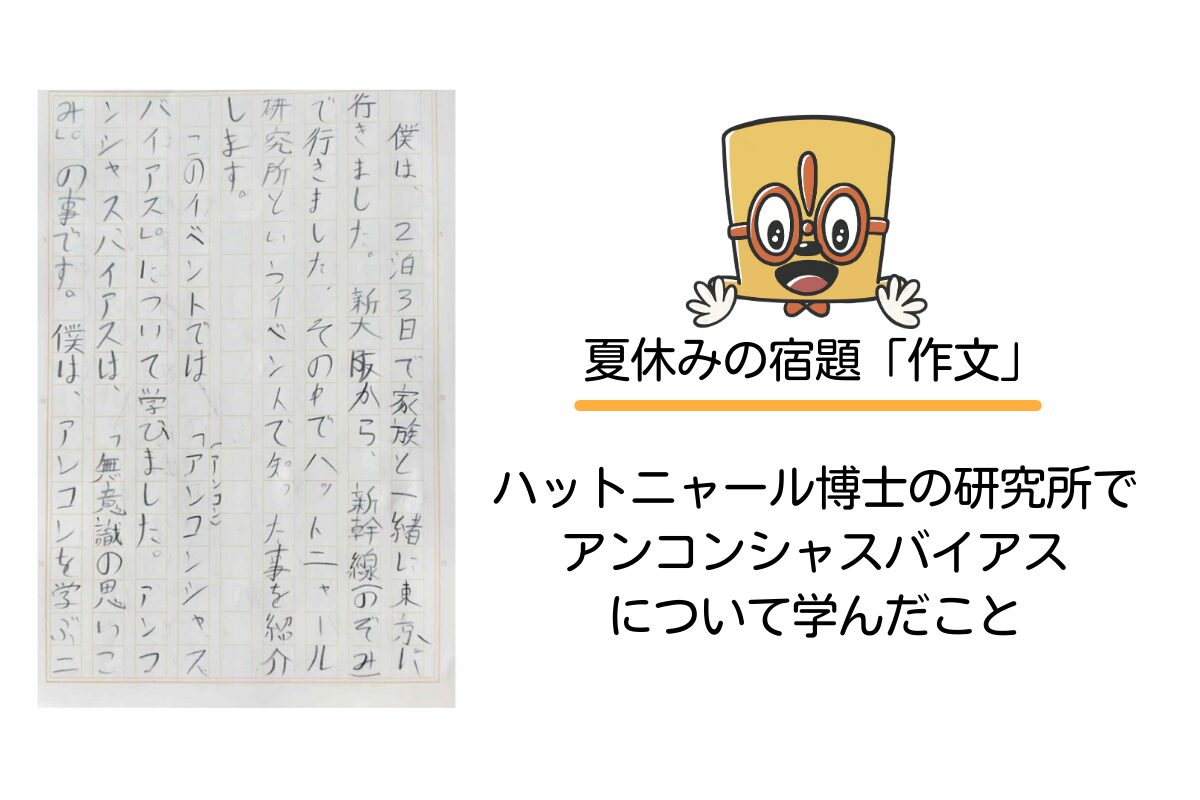 僕は、2泊3日で家族と一緒に東京に
行きました。新大阪から、新幹線(のぞみ)
で行きました。その中でハットニャール
研究所というイベントで知った事を紹介
します。
このイベントでは、「アンコンシャス
バイアス」について学びました。アンコ
ンシャスバイアスは、「無意識の思いこ
み」の事です。僕は、アンコンを学ぶ二
夏休みの宿題「作文」
ハットニャール博士の研究所で
アンコンシャスバイアス
について学んだこと